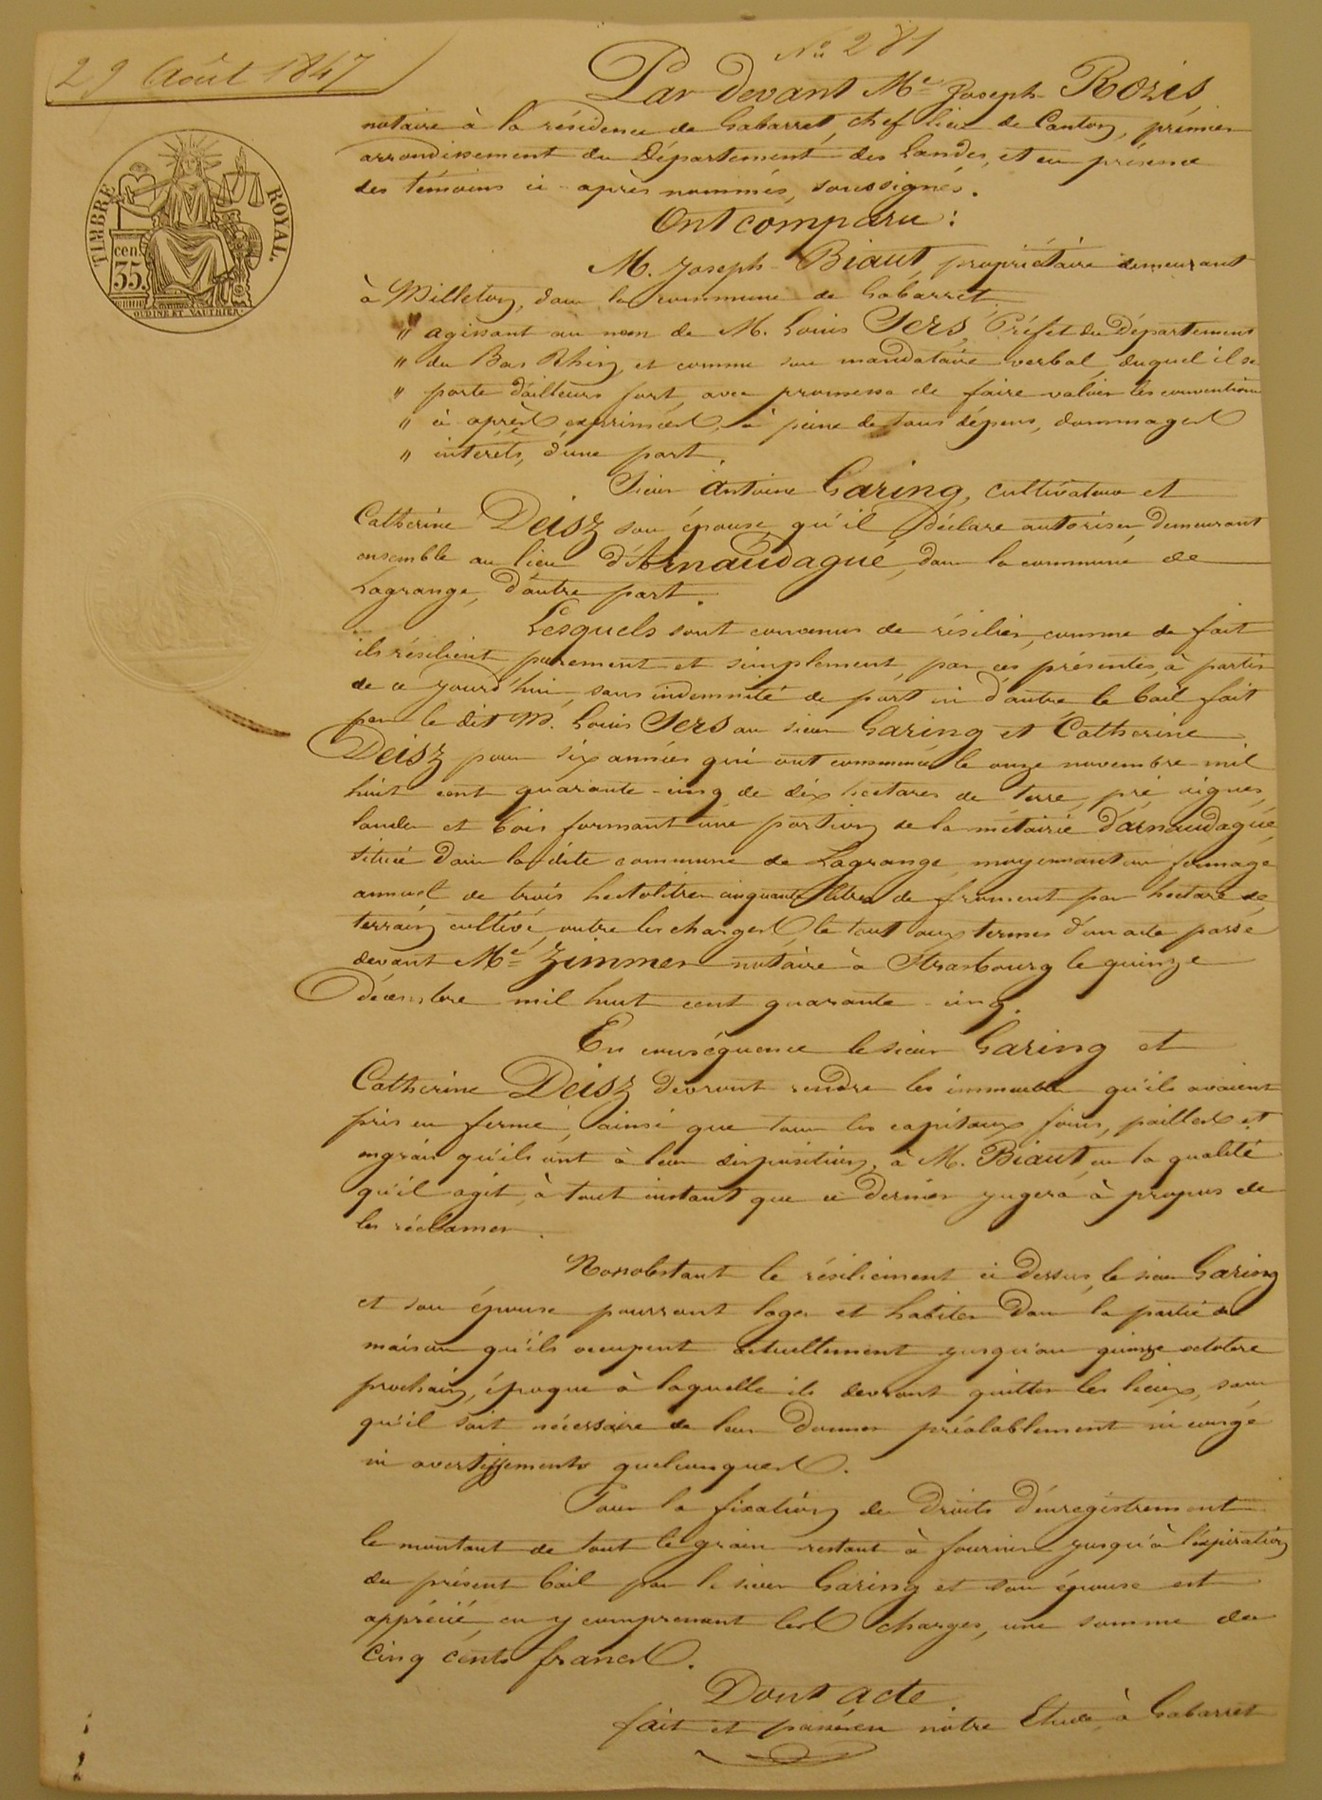 29 Août 1847
Nº 281
TIMBRE ROYAL.
cen.
35.
OUDINE ET VAUTHIER.
Par devant Me Joseph Rozis,
notaire à la résidence de Gabarret, chef lieu de Canton, premier
arrondissement du Département des Landes, et en présence
des témoins ci-après nommés, soussignés.
Ont comparu :
M. Joseph Biaut, propriétaire demeurant
à Milleton, dans la commune de Gabarret
" agissant au nom de M. Louis Sers, Préfet du Département
" du Bas Rhin, et comme son mandataire verbal, duquel il se
" porte d'ailleurs fort, avec promesse de faire valoir les conventions
" ci après exprimées, à peine de tous dépens, dommages
" intérêts, d'une part.
Sieur Antoine Garing, cultivateur et
Catherine Deisz son épouse qu'il déclare autoriser, demeurant
ensemble au lieu d'Arnaudagué, dans la commune de
Lagrange, d'autre part.
Lesquels sont convenus de résilier, comme de fait
ils résilient purement et simplement, par ces présentes, à partir
de ce jourd'hui, sans indemnité de part ni d'autre, le bail fait
par le dit M. Louis Sers au sieur Garing et Catherine
Deisz pour six années qui ont commencé le onze novembre mil
huit cent quarante-cinq de dix hectares de terre, pré vignes,
landes et bois formant une portion de la métairie d'arnaudagué,
située dans la dite commune de Lagrange, moyennant un fermage
annuel de trois hectolitres cinquante litres de froment par hectare de
terrain cultivé, outre les charges, le tout aux termes d'un acte passé
devant Me Zimmer notaire à Strasbourg le quinze
décembre mil huit cent quarante-cinq.
En conséquence le sieur Garing et
Catherine Deisz devront rendre les immeubles qu'ils avaient
pris en ferme, ainsi que tous les capitaux, foins, pailles et
engrais qu'ils ont à leur disposition, à M. Biaut, en la qualité
qu'il agit, à tout instant que ce dernier jugera à propos de
les réclamer.
Nonobstant le résiliement ci dessus, le sieur Garing
et son épouse pourront loger et habiter dans la partie de
maison qu'ils occupent actuellement jusqu'au quinze octobre
prochain, époque à laquelle ils devront quitter les lieux, sans
qu'il soit nécessaire de leur donner préalablement ni congé
ni avertissements quelconques.
Pour la fixation des Droits d'enregistrement
le montant de tout le grain restant à fournir jusqu'à l'expiration
du présent bail par le sieur Garing et son épouse est
apprécié, en y comprenant les charges, une somme de
cinq cents francs.
Dont acte.
fait et passé en notre Etude, à Gabarret